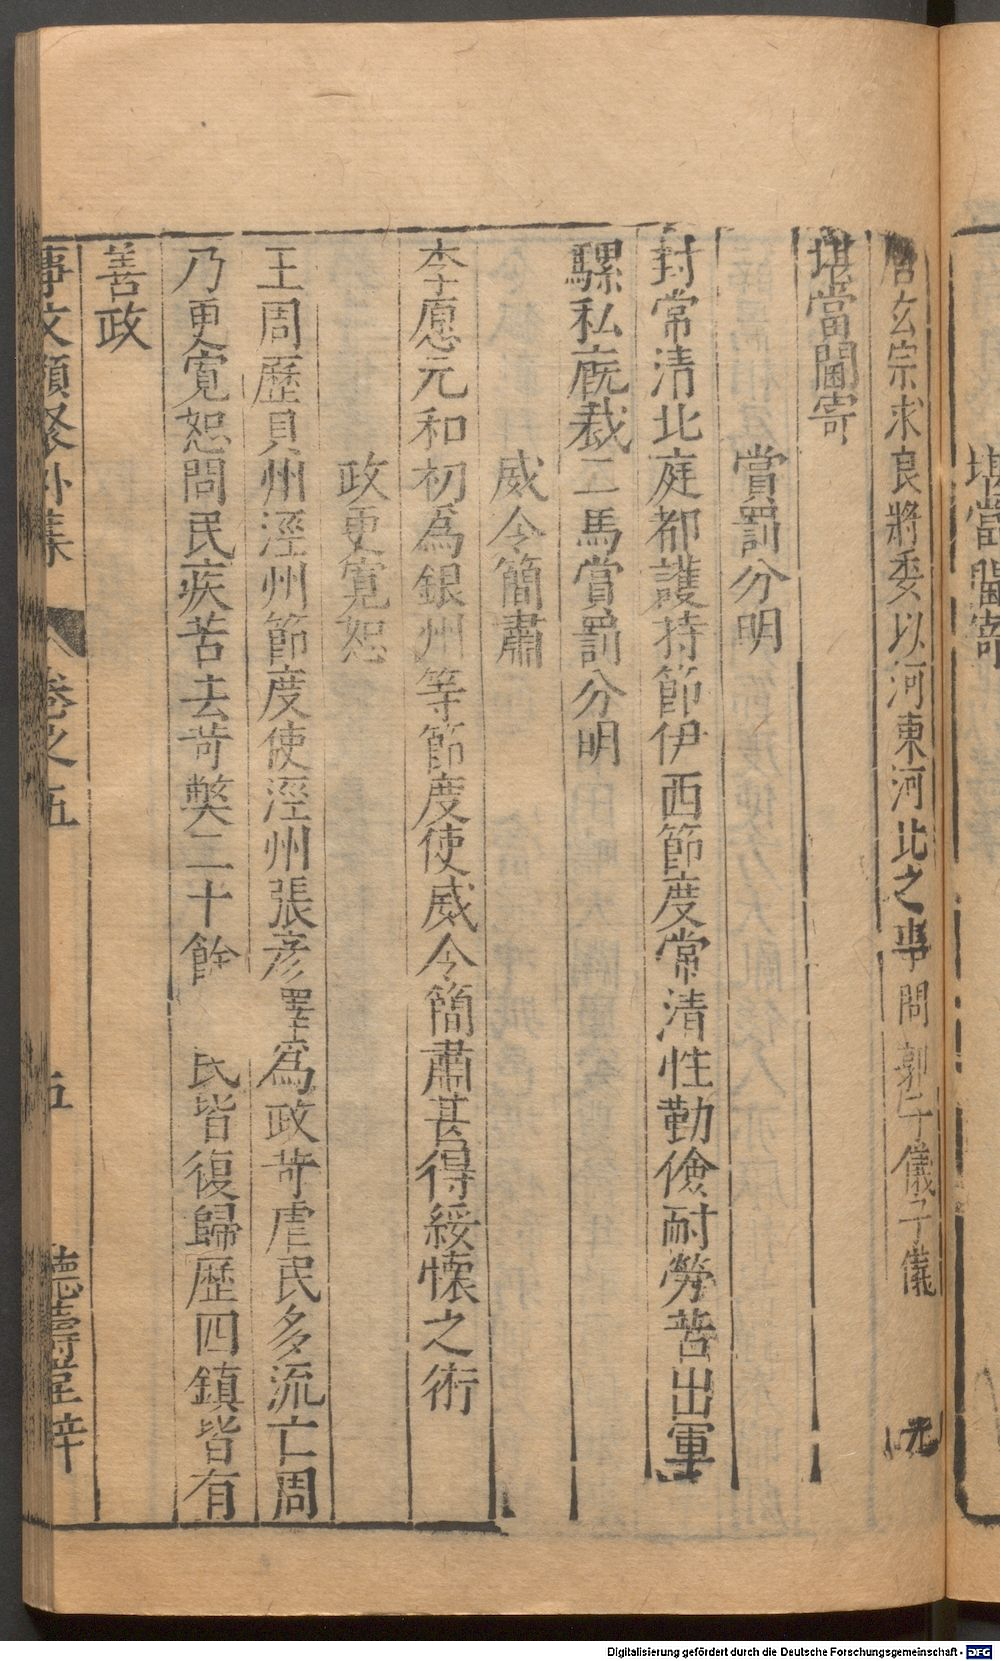 堪當閫寄
唐玄宗求良將委以河東河北之事問郭子儀子儀
堪當閫寄
賞罰分明
封常清北庭都護持節伊西節度常清性勤儉耐勞苦出軍
騾私廐裁二馬賞罰分明
威令簡肅
李愿元和初爲銀州等節度使威令簡肅甚得綏懷之術
政更寬恕
王周歷貝州涇州節度使涇州張彥澤爲政苛虐民多流亡周
乃更寬恕問民疾苦去苛獘二十餘 民皆復歸歷四鎮皆有
善政
事文類聚外集 卷之五 五 德壽堂梓
Digitalisierung gefördert durch die Deutsche Forschungsgemeinschaft - DFG